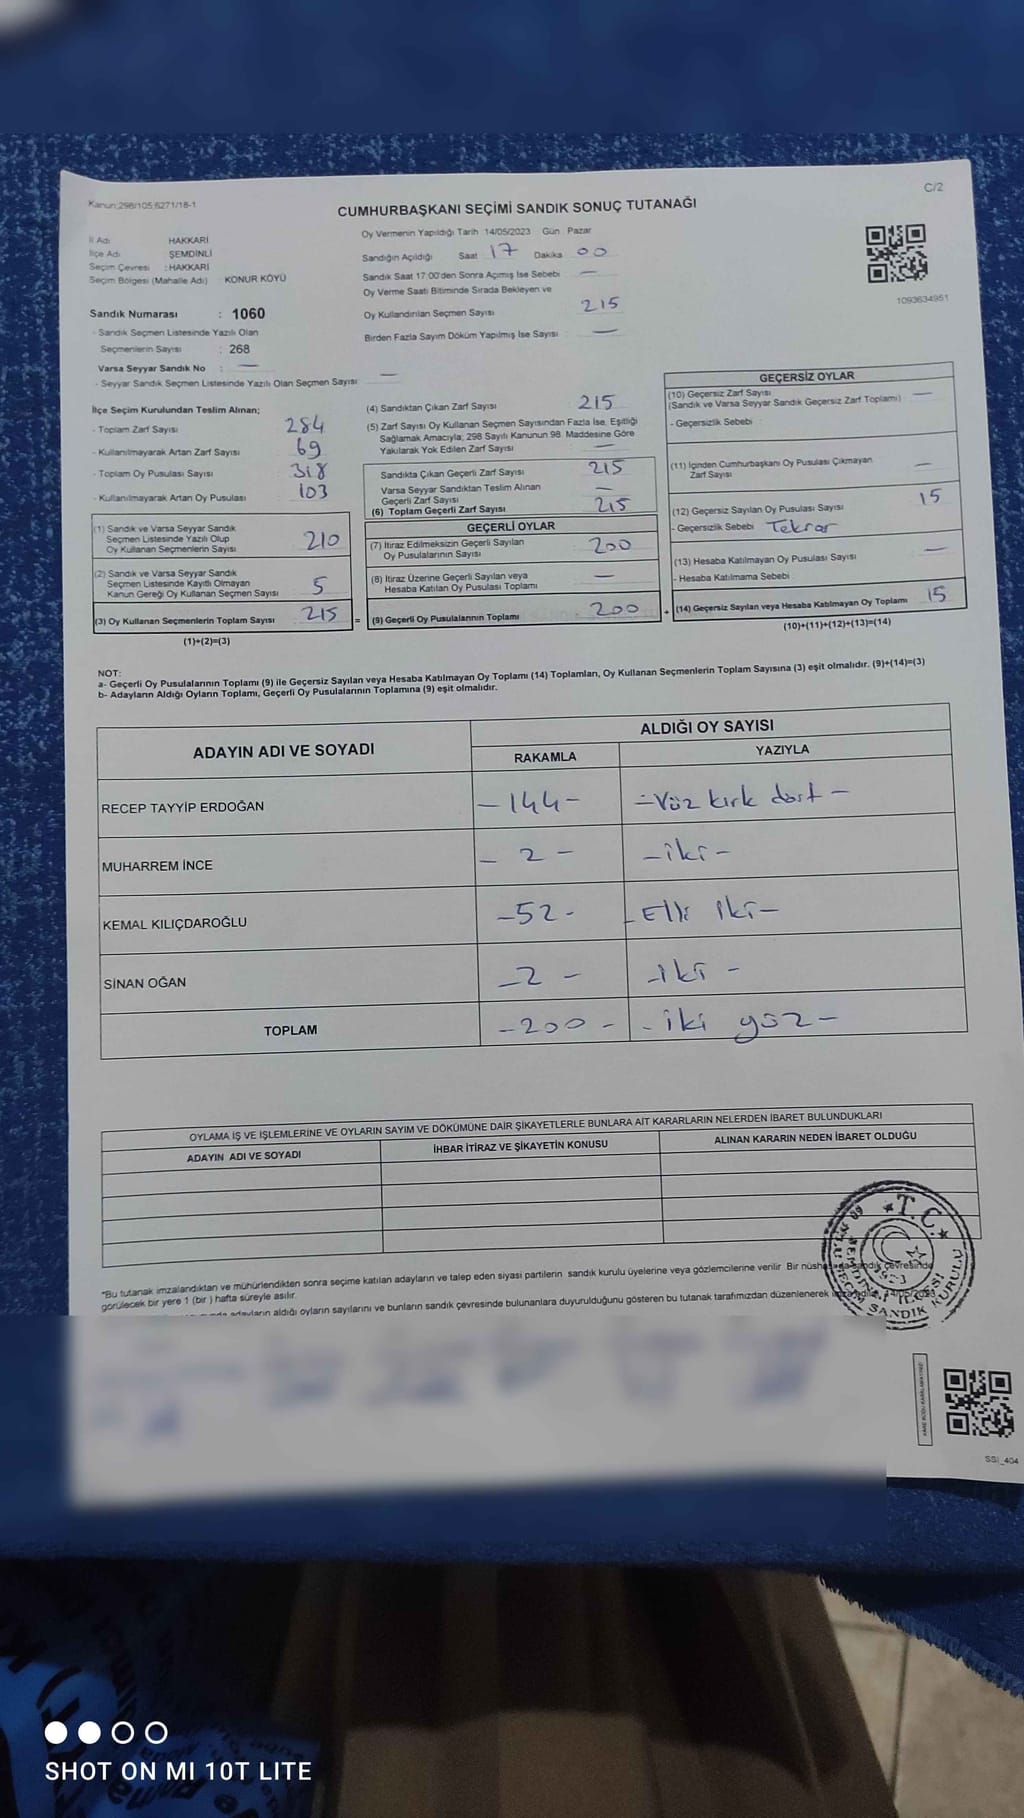 Kanun:298/105;6271/18-1
C/2
CUMHURBAŞKANI SEÇİMİ SANDIK SONUÇ TUTANAĞI
İl Adı HAKKARİ
İlçe Adı ŞEMDİNLİ
Seçim Çevresi : HAKKARİ
Seçim Bölgesi (Mahalle Adı) KONUR KÖYÜ
Sandık Numarası : 1060
- Sandık Seçmen Listesinde Yazılı Olan
Seçmenlerin Sayısı : 268
Varsa Seyyar Sandık No : —
- Seyyar Sandık Seçmen Listesinde Yazılı Olan Seçmen Sayısı: —
Oy Vermenin Yapıldığı Tarih 14/05/2023 Gün : Pazar
Sandığın Açıldığı Saat 17 Dakika 00
Sandık Saat 17:00'den Sonra Açımış İse Sebebi —
Oy Verme Saati Bitiminde Sırada Bekleyen ve
Oy Kullandırılan Seçmen Sayısı 215
Birden Fazla Sayım Döküm Yapılmış İse Sayısı : —
1093634951
İlçe Seçim Kurulundan Teslim Alınan;
- Toplam Zarf Sayısı 284
- Kullanılmayarak Artan Zarf Sayısı 69
- Toplam Oy Pusulası Sayısı 318
- Kullanılmayarak Artan Oy Pusulası 103
(1) Sandık ve Varsa Seyyar Sandık
Seçmen Listesinde Yazılı Olup
Oy Kullanan Seçmenlerin Sayısı 210
(2) Sandık ve Varsa Seyyar Sandık
Seçmen Listesinde Kayıtlı Olmayan
Kanun Gereği Oy Kullanan Seçmen Sayısı 5
(3) Oy Kullanan Seçmenlerin Toplam Sayısı 215 =
(1)+(2)=(3)
(4) Sandıktan Çıkan Zarf Sayısı 215
(5) Zarf Sayısı Oy Kullanan Seçmen Sayısından Fazla İse, Eşitliği
Sağlamak Amacıyla, 298 Sayılı Kanunun 98. Maddesine Göre
Yakılarak Yok Edilen Zarf Sayısı —
Sandıkta Çıkan Geçerli Zarf Sayısı 215
Varsa Seyyar Sandıktan Teslim Alınan
Geçerli Zarf Sayısı —
(6) Toplam Geçerli Zarf Sayısı 215
GEÇERLİ OYLAR
(7) İtiraz Edilmeksizin Geçerli Sayılan
Oy Pusulalarının Sayısı 200
(8) İtiraz Üzerine Geçerli Sayılan veya
Hesaba Katılan Oy Pusulası Toplamı —
(9) Geçerli Oy Pusulalarının Toplamı 200 +
GEÇERSİZ OYLAR
(10) Geçersiz Zarf Sayısı
(Sandık ve Varsa Seyyar Sandık Geçersiz Zarf Toplamı) —
- Geçersizlik Sebebi :
(11) İçinden Cumhurbaşkanı Oy Pusulası Çıkmayan
Zarf Sayısı —
(12) Geçersiz Sayılan Oy Pusulası Sayısı 15
- Geçersizlik Sebebi Tekrar
(13) Hesaba Katılmayan Oy Pusulası Sayısı —
- Hesaba Katılmama Sebebi :
(14) Geçersiz Sayılan veya Hesaba Katılmayan Oy Toplamı 15
(10)+(11)+(12)+(13)=(14)
NOT:
a- Geçerli Oy Pusulalarının Toplamı (9) ile Geçersiz Sayılan veya Hesaba Katılmayan Oy Toplamı (14) Toplamları, Oy Kullanan Seçmenlerin Toplam Sayısına (3) eşit olmalıdır. (9)+(14)=(3)
b- Adayların Aldığı Oyların Toplamı, Geçerli Oy Pusulalarının Toplamına (9) eşit olmalıdır.
ADAYIN ADI VE SOYADI
ALDIĞI OY SAYISI
RAKAMLA YAZIYLA
RECEP TAYYİP ERDOĞAN -144- -Yüz kırk dört-
MUHARREM İNCE - 2 - -iki-
KEMAL KILIÇDAROĞLU -52- -Elli iki-
SİNAN OĞAN -2- -iki-
TOPLAM -200- -iki yüz-
OYLAMA İŞ VE İŞLEMLERİNE VE OYLARIN SAYIM VE DÖKÜMÜNE DAİR ŞİKAYETLERLE BUNLARA AİT KARARLARIN NELERDEN İBARET BULUNDUKLARI
ADAYIN ADI VE SOYADI İHBAR İTİRAZ VE ŞİKAYETİN KONUSU ALINAN KARARIN NEDEN İBARET OLDUĞU
*Bu tutanak imzalandıktan ve mühürlendikten sonra seçime katılan adayların ve talep eden siyasi partilerin sandık kurulu üyelerine veya gözlemcilerine verilir. Bir nüshası da sandık çevresinde
görülecek bir yere 1 (bir ) hafta süreyle asılır.
adayların aldığı oyların sayılarını ve bunların sandık çevresinde bulunanlara duyurulduğunu gösteren bu tutanak tarafımızdan düzenlenerek 14/05/2023
T.C.
SANDIK KURULU
SSI_404
SHOT ON MI 10T LITE